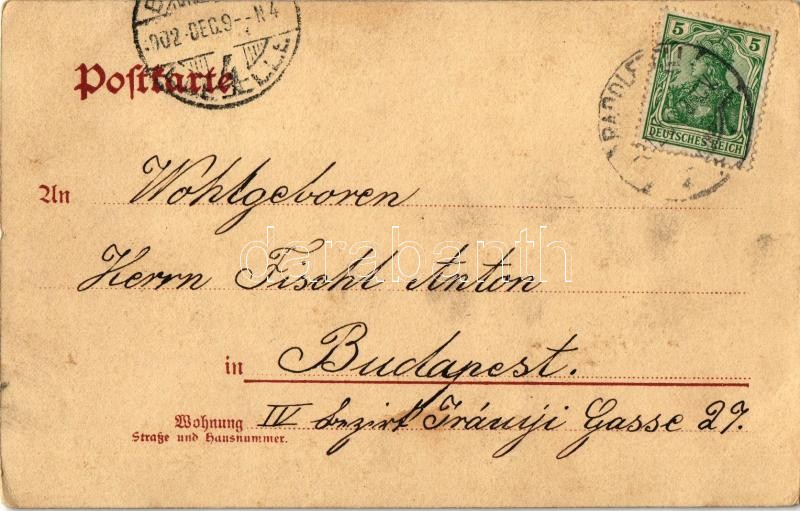 902 DEC 9 N 4
4
Postkarte
5 5
DEUTSCHES REICH
RADOLF
An Wohlgeboren
Herrn Fischl Anton
darabanth
in Budapest.
Wohnung IV Bezirk Irányi Gasse 27.
Straße und Hausnummer.